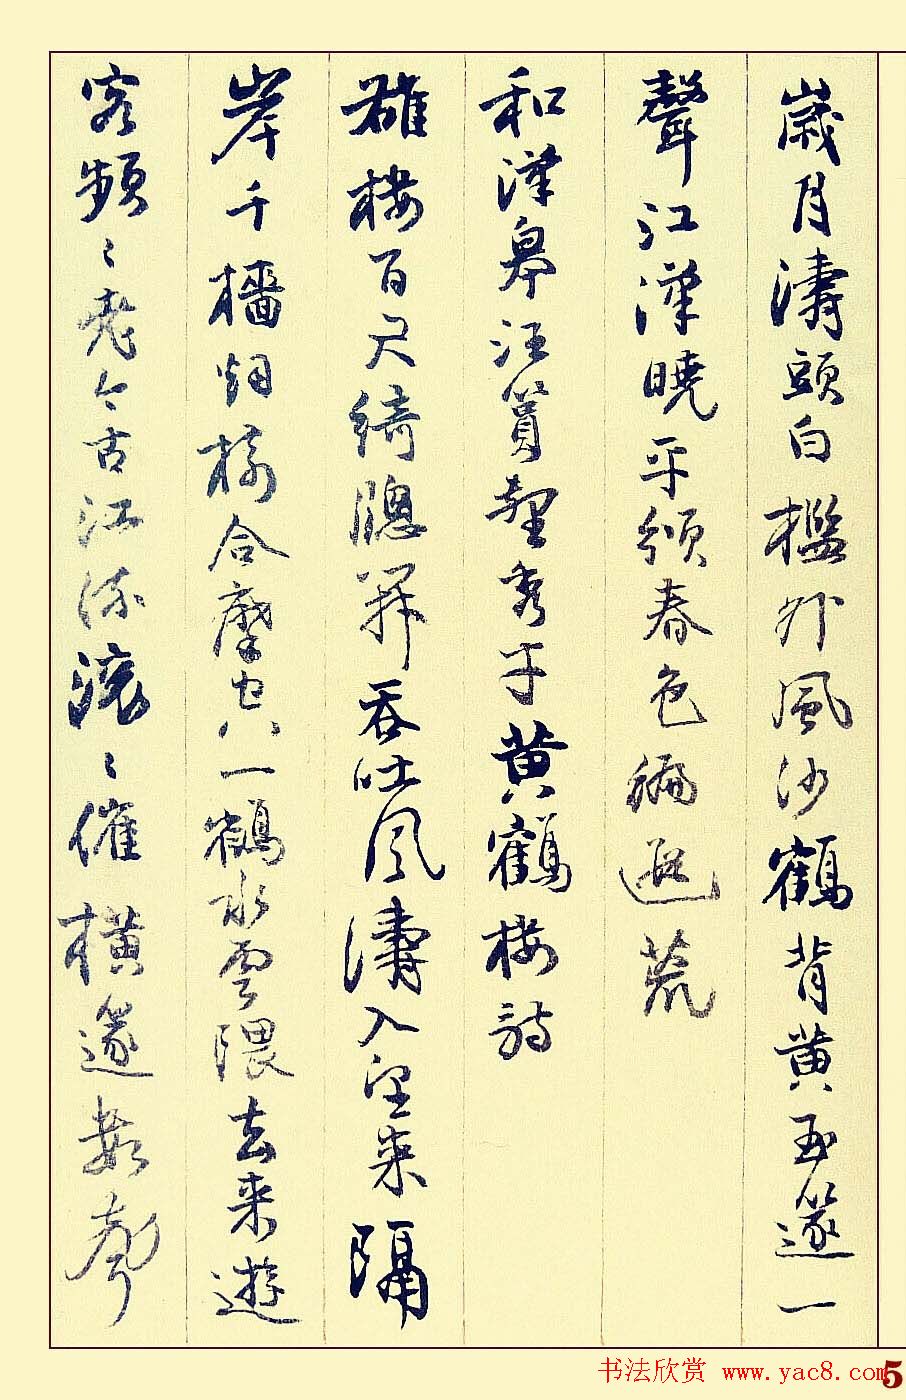 歲月濤頭白檻外風沙鶴背黄玉邃一
聲江漢曉平領春色徧遐荒
和漢皋江篔秀子黄鶴樓詩
雄樓百尺綺牕開吞吐風濤入望來隔
岸千檣烟樹合摩空一鶴水雲隈去來遊
客頻頻老今古江流滾滾催橫邃數聲
书法欣赏 www.yac8.com
5